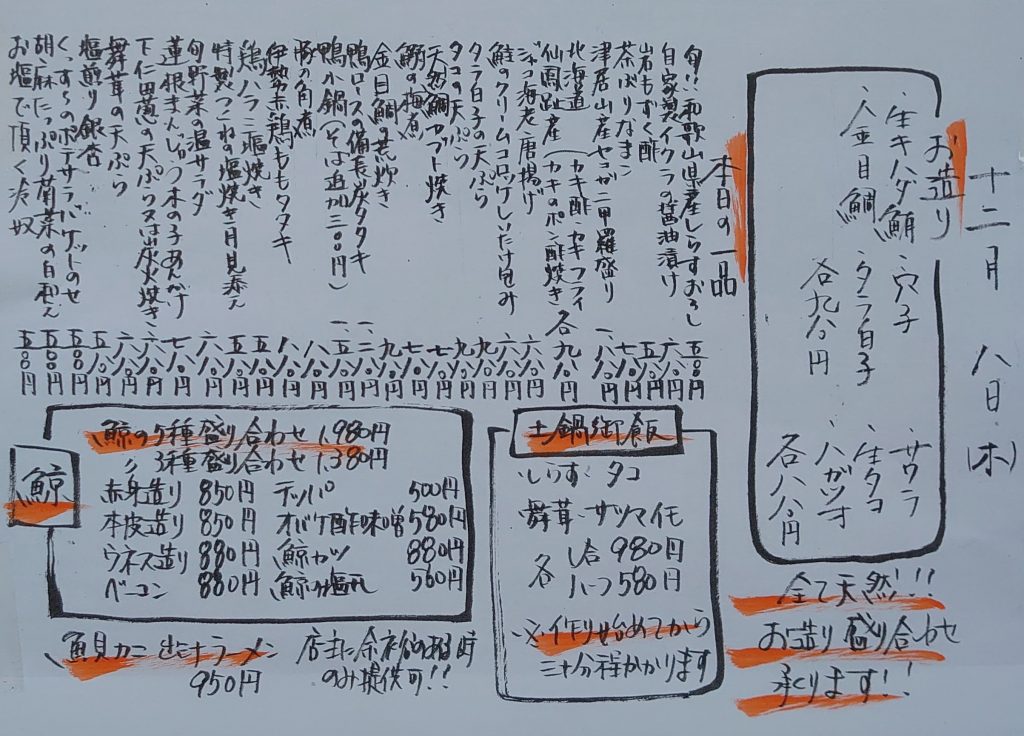 十二月八日(木)
お造り
・生キハダ鮪
・金目鯛
・穴子
・タラ白子
各九八〇円
・サワラ
・生タコ
・ハガツオ
各八八〇円
全て天然!!
お造り盛り合わせ
承ります!!
本日の一品
旬!!和歌山県産しらすおろし 五八〇円
自家製イクラの醤油漬け 六八〇円
岩もずく酢 五八〇円
茶ぶりなまこ 七八〇円
津居山産セコガニ甲羅盛り 一、八〇〇円
北海道
仙鳳趾産(カキ酢 カキフライ
カキのポン酢焼き 各九八〇円
ジャコ海老唐揚げ 六八〇円
鮭のクリームコロッケしいたけ包み 六八〇円
タラ白子の天ぷら 九八〇円
タコの天ぷら 九八〇円
天然鯛カブト焼き 七八〇円
鰯の梅煮 七八〇円
金目鯛の荒炊き 九八〇円
鴨ロースの備長炭タタキ 一、二八〇円
鴨小鍋(そば追加三〇〇円) 一、五八〇円
豚の角煮 八八〇円
伊勢赤鶏ももタタキ 八八〇円
鶏ハラミ塩焼き 五八〇円
特製つくねの塩焼き月見添え 五八〇円
旬野菜の温サラダ 六八〇円
蓮根まんじゅう木の子あんかけ 七八〇円
下仁田葱の天ぷら又は炭火焼き 六八〇円
舞茸の天ぷら 六八〇円
塩煎り銀杏 五〇〇円
くっすーのポテサラバゲットのせ 五〇〇円
胡麻たっぷり菊菜の白和え 五〇〇円
お塩で頂く冷奴 五〇〇円
土鍋御飯
・しらす・タコ
・舞茸・サツマイモ
各 1合 980円
ハーフ 580円
※作り始めてから
三十分程かかります
鯨
鯨の5種盛り合わせ 1,980円
〃 3種盛り合わせ 1,380円
赤身造り 850円
本皮造り 850円
ウネス造り 880円
ベーコン 880円
テッパ 500円
オバケ酢味噌 580円
鯨カツ 880円
鯨の塩タレ 560円
魚貝カニ出汁ラーメン
950円
店主に余裕のある時
のみ提供可!!